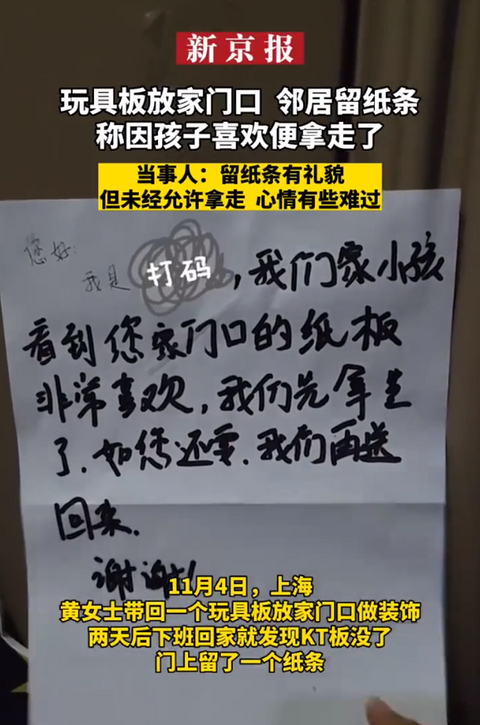 新京报
玩具板放家门口 邻居留纸条
称因孩子喜欢便拿走了
当事人：留纸条有礼貌
但未经允许拿走 心情有些难过
您好：
我是 打码，我们家小孩
看到您家门口的纸板
非常喜欢，我们先拿走
了．如您还要．我们再送
回来．
谢谢！
11月4日，上海
黄女士带回一个玩具板放家门口做装饰
两天后下班回家就发现KT板没了
门上留了一个纸条